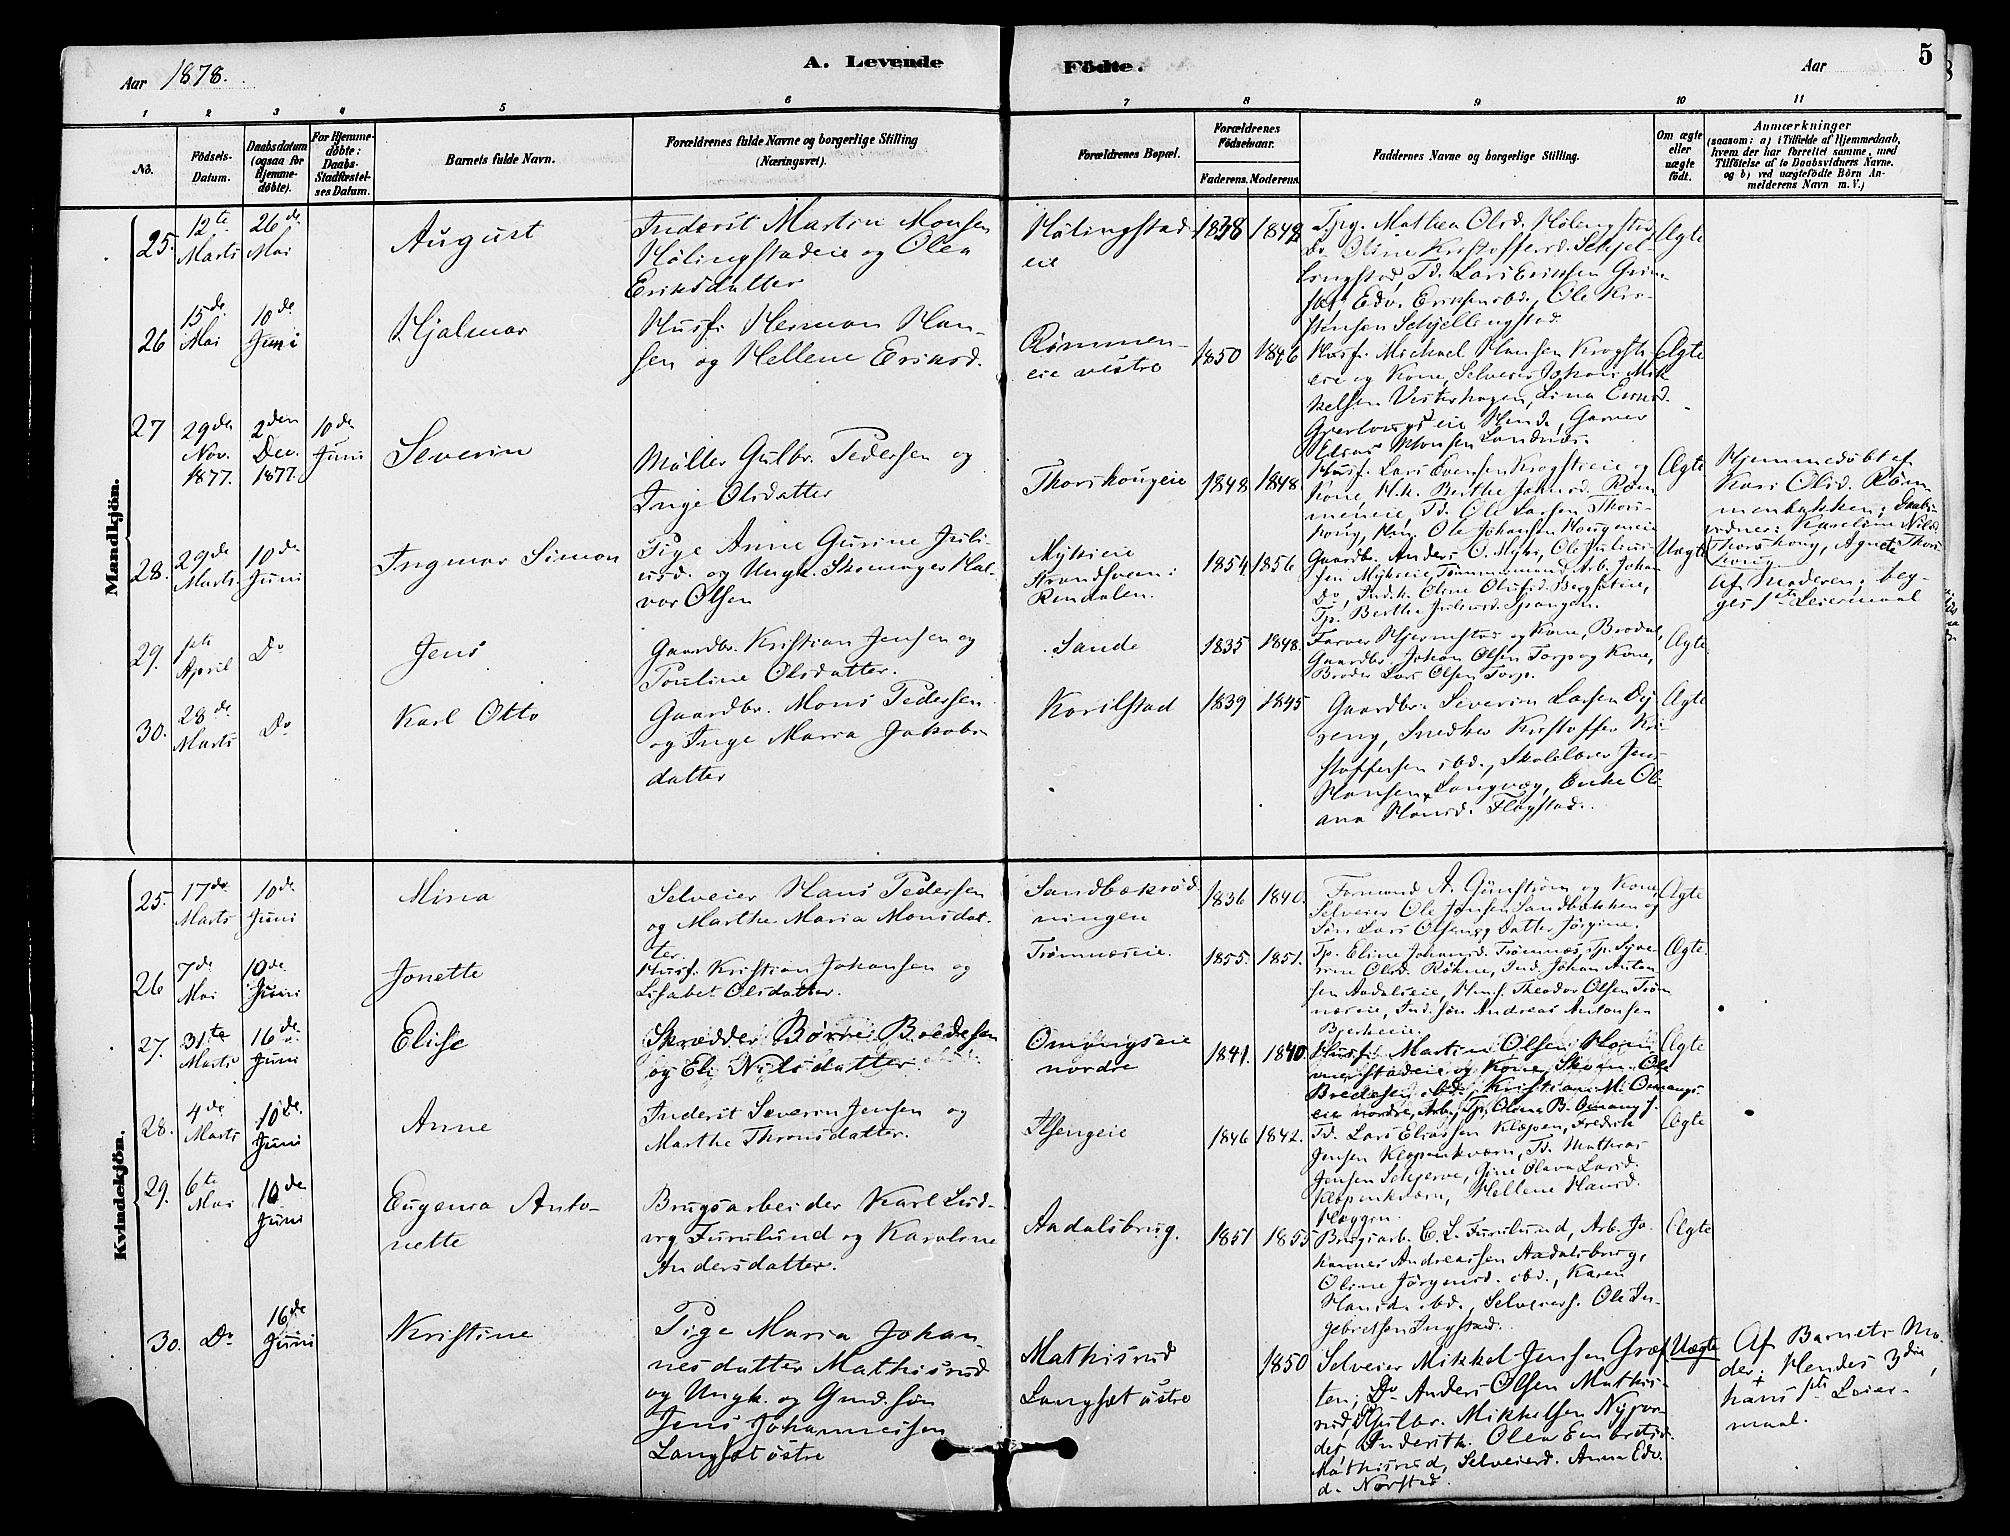 Aar 1878.
A. Levende
Födte.
Aar
5
1 2 3 4 5 6 7 8 9 10 11
No.
Födsels-Datum.
Daabsdatum (ogsaa for Hjemme-døbte).
For Hjemme-døbte: Daabs-Stadfæstel-ses Datum.
Barnets fulde Navn.
Forældrenes fulde Navne og borgerlige Stilling (Næringsvei).
Forældrenes Bopæl.
Forældrenes Födselsaar.
Faderens. Moderens.
Faddernes Navne og borgerlige Stilling.
Om ægte eller uægte födt.
Anmærkninger
(saasom: a) i Tilfælde af Hjemmedaab,
hvem der har forrettet samme, med
Tilföielse af to Daabsvidners Navne.
og b) ved uægtefödte Börn An-
melderens Navn m. V.)
Mandkjön.
25. 12te Marts 26de Mai August
Inderst Martin Monsen
Hölingstadeie og Olea
Eriksdatter
Hölingstad
eie
1838 1842
Tpg. Mathea Olsd. Hölingstad
Do Oline Kristoffersd. Skjel-
lingstad, Td. Lars Eriksen Grim-
Edv. Eriksen ibd., Ole Kri-
stensen Schjellingstad.
Ægte
26 15de Mai 10de Juni Hjalmar
Husf. Herman Han-
sen og Hellene Eriksd.
Rømmen-
eie vestre
1850 1846
Husf. Michael Hansen Krogsti
eie og Kone, Selveier Johan Mik-
kelsen Vesterhagen, Lina
Elias Monsen Sandnæs.
Ægte
27 29de Nov. 1877. 2den Dec. 1877. 10de Juni Severin
Møller Gulbr. Pedersen og
Inge Olsdatter
Thorshougeie
1848 1848
Husf. Lars Svensen Krogstieie og
Kone, H.k. Berthe Johnsd. Røm-
meneie, Td. Ole Larsen Thors-
houg, Ole Johansen Hougeneie
Ægte
Hjemmedøbt af
Kari Olsd. Røm-
menbakken; Daabs-
vidner: Karoline Nilsd.
Thorshoug, Agnete Thors-
houg.
28. 29de Marts 10de Juni Ingmar Simon
Pige Anne Gurine Juli-
usd. og Ungk. Skomager Hal-
vor Olsen
Myhreie
Rendalen.
1854 1856
Gaardbr. Anders O. Myhr, Ole Julius-
sen Myhreie, Tømmermand Arb. Johan
Do, Ind.k. Oline Olufsd. Bergseteie,
Tp. Berthe Juliusd. Spangen.
Uægte
Af Moderen; beg-
ges 1ste Leiermaal
29. 1ste April Do Jens
Gaardbr. Kristian Jensen og
Pouline Olsdatter.
Sande
1835 1848.
Farver Hjermstad og Kone, Brodal,
Gaardbr. Johan Olsen Torp og Kone,
Broder Lars Olsen Torp.
Ægte
30. 28de Marts Do Karl Otto
Gaardbr. Mons Pedersen
og Inge Maria Jakobs-
datter
Karilstad
1839 1845
Gaardbr. Severin Larsen Dy-
reng, Snedker Kristoffer Kri-
stoffersen ibd., Skolelærer Jens
Hansen Langvæg, Enke Oli-
ana Hansd. Flagstad.
Ægte
Kvindekjön.
25. 17de Marts 10de Juni Mina
Selveier Hans Pedersen
og Marthe Maria Monsdat-
ter.
Sandbækrød-
ningen
1836 1840.
Formand A. Günstrøm og Kone
Selveier Ole Jensen Sandbækken og
Søn Lars Olsen og Datter Jørgine.
Ægte
26 7de Mai 10de Juni Jonette
Husf. Kristian Johansen og
Lisabet Olsdatter.
Trømnæseie.
1855. 1851.
Tp. Eline Johansd. Trømnæs, Tp. Syve-
rine Olsd. Røhne, Ind. Johan Anton-
sen Aadalseie, Husf. Theodor Olsen Trøm-
næseie, Ind. søn Andreas Antonsen
Bjerkeeie.
Ægte
27. 31te Marts 16de Juni Elise
Skrædder Børre Bredesen
og Eli Nilsdatter.
Omangseie
nordre
1841. 1840.
Husf. Martin Olsen Hom-
merstadeie og Kone, Ole
Bredesen ibd., Kristian M. Omangs-
eie nordre, Arb., Tp. Oline B. Omang f.
Ægte
28. 4de Marts 10de Juni Anne
Inderst Severin Jensen og
Marthe Thronsdatter.
Ilsengeie
1846 1842.
Td. Lars Eliassen Klæpen, Fredrik
Jensen Klæpenkværn, Td. Mathias
Jensen Skjerve, Gine Olava Larsd.
Klæpenkværn, Hellene Hansd.
Hæggen.
Ægte
29. 6te Mai 10de Juni Eugenia Anto-
nette
Brugsarbeider Karl Lud-
vig Furulund og Karoline
Andersdatter.
Aadalsbrug.
1851 1855
Brugsarb. C. L. Furulund, Arb. Jo-
hannes Andreassen Aadalsbrug,
Oline Jörgensd. ibd., Karen
Hansd. ibd., Selveiers. Ole In-
gebretsen Ingstad.
Ægte
30. Do 16de Juni Kristine
Pige Maria Johan-
nesdatter Mathisrud
og Ungk. og Gmd. søn
Jens Johannessen
Langsæt østre
Mathisrud
Langsæt østre
1850
Selveier Mikkel Jensen Græs-
ten; Do Anders Olsen Mathis-
rud, Gulbr. Mikkelsen
Inderstk. Olea Embretsd.
Mathisrud, Selveierd. Anna Edv.
d. Norstad.
Uægte
Af Barnets Mo-
der; Hendes 3die,
hans 1ste Leier-
maal.